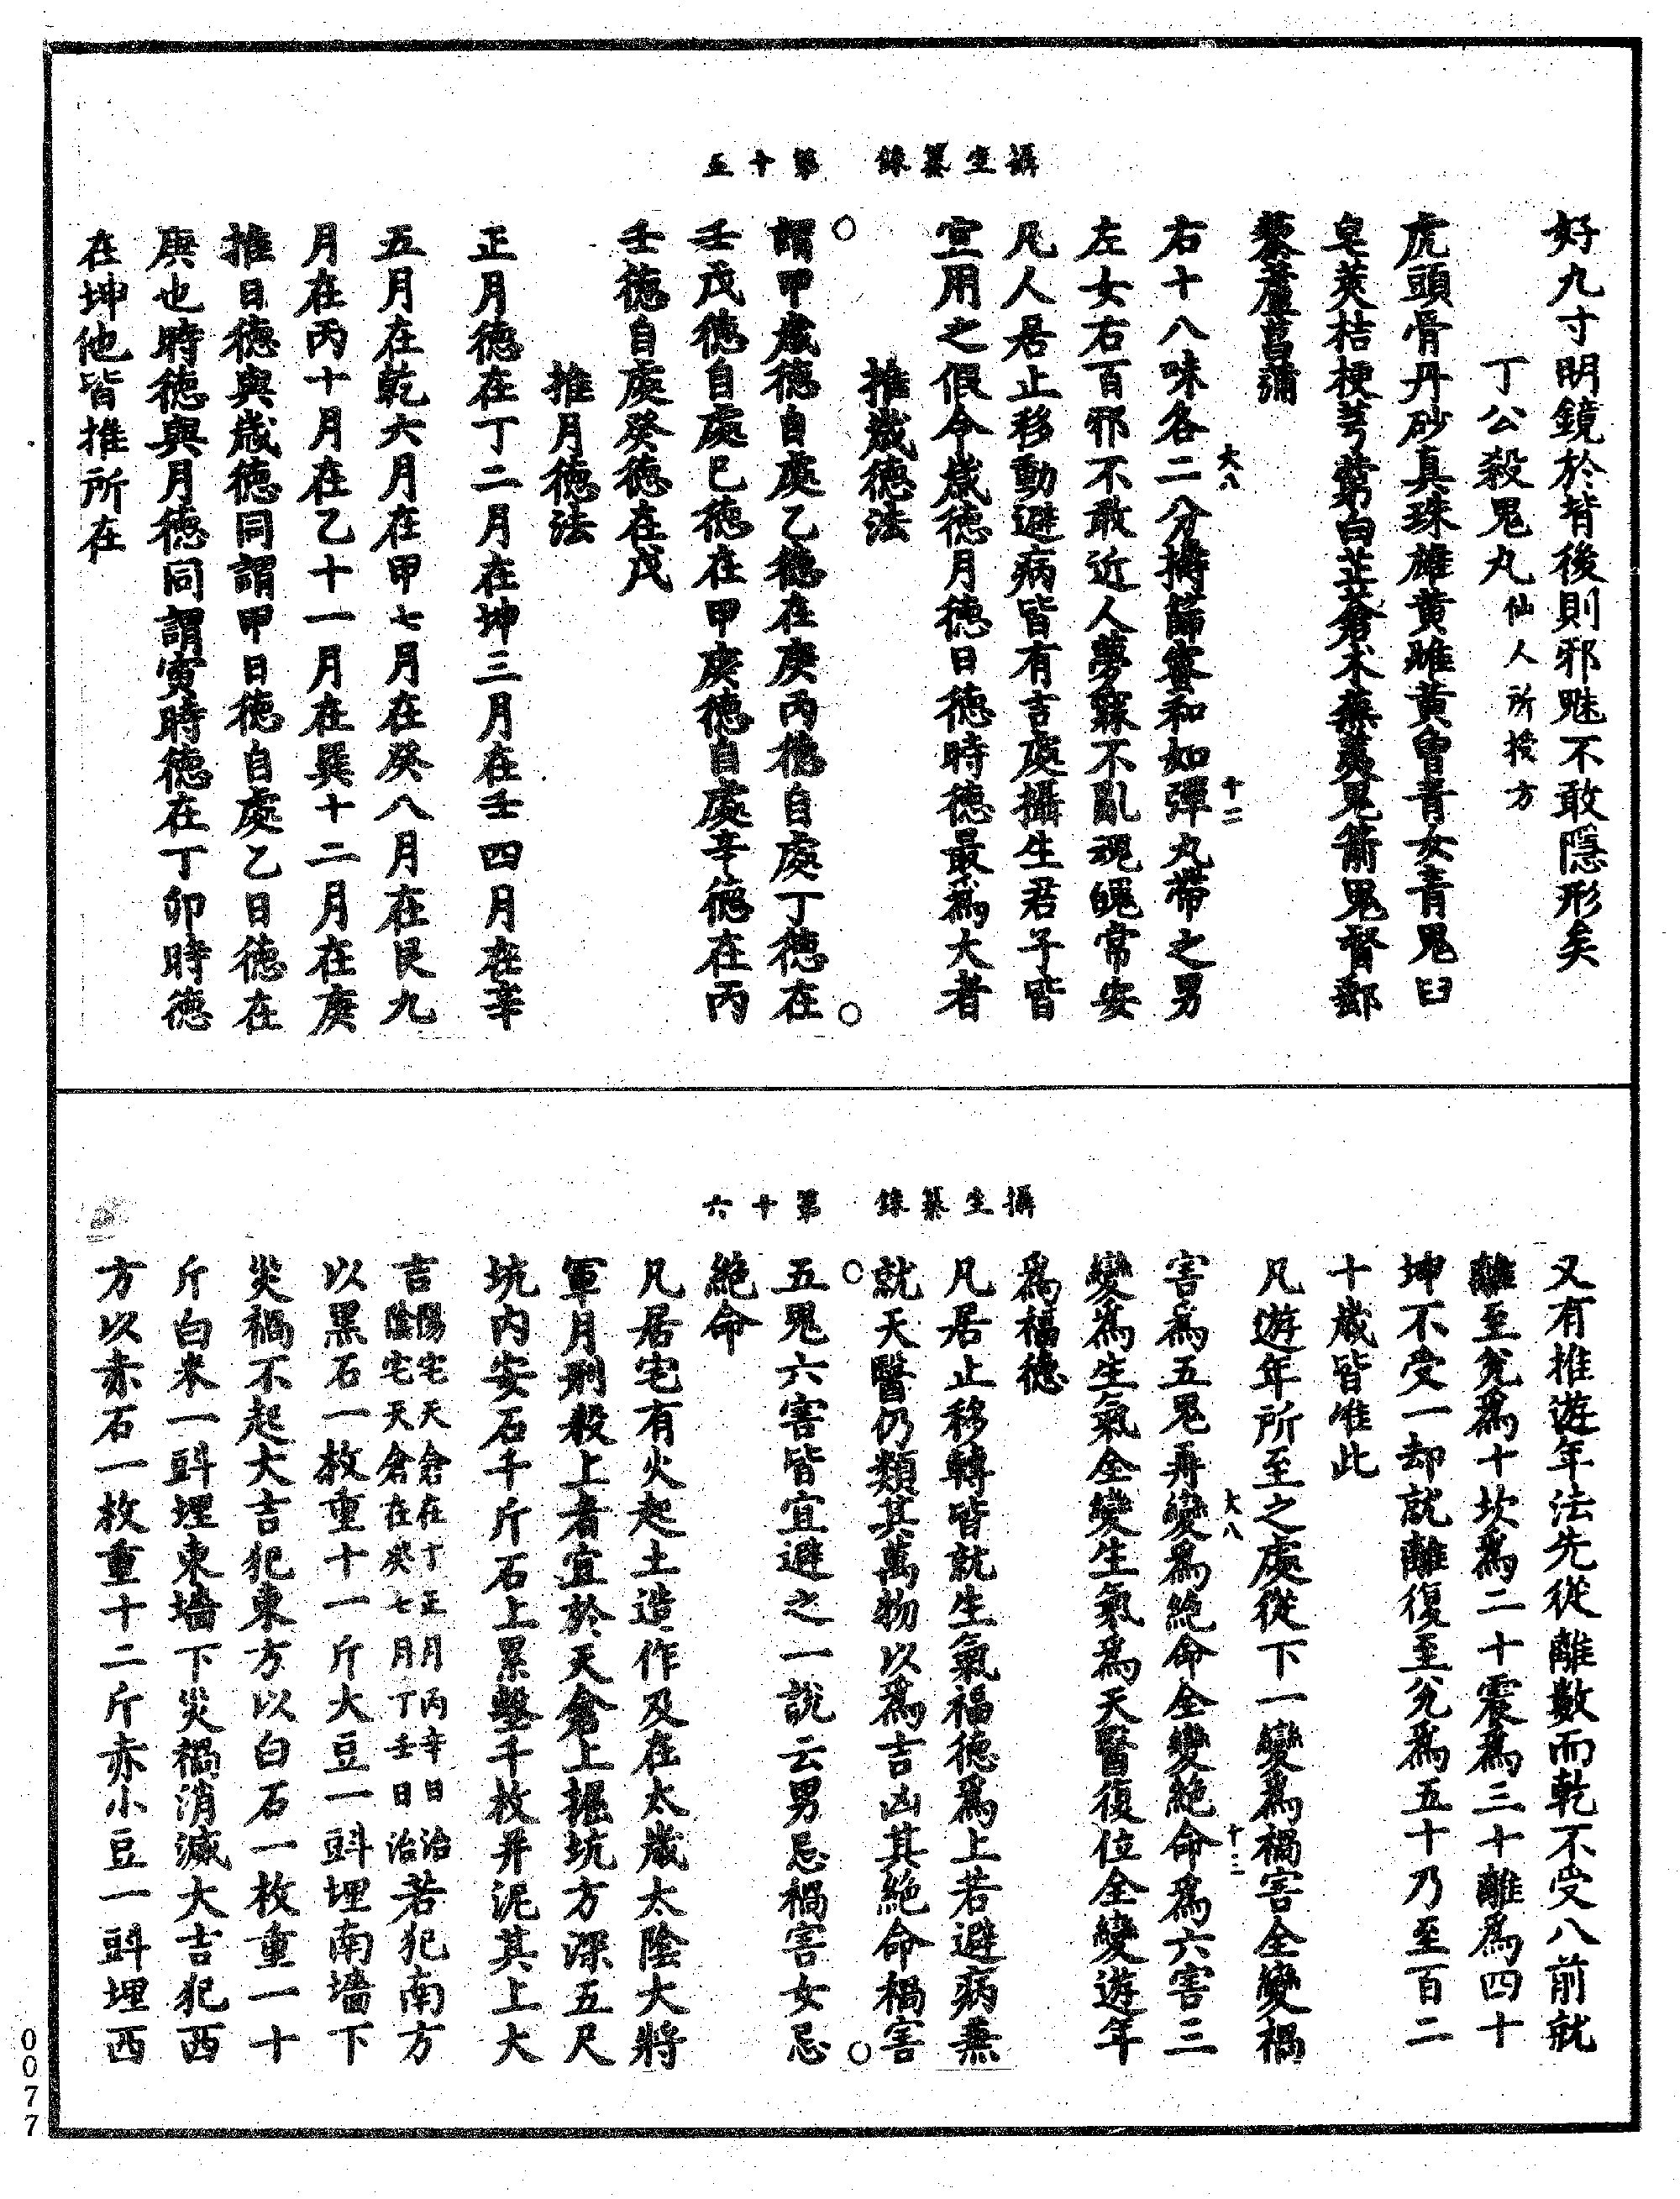 攝生纂錄　第十五
好九寸明鏡於背後則邪魅不敢隱形矣
丁公殺鬼丸仙人所授方
虎頭骨丹砂真珠雄黃雌黃曾青女青鬼臼
皂莢桔梗芎藭白芷蒼朮藜蕪夷鬼箭鬼督郵
藜蘆菖蒲
右十八味各二分擣篩蜜和如彈丸帶之男
左女右百邪不敢近人夢寐不亂魂魄常安
凡人居止移動避病皆有吉處攝生君子皆
宜用之假令歲德月德日德時德最爲大者
推歲德法
謂甲歲德自處乙德在庚丙德自處丁德在
壬戊德自處己德在甲庚德自處辛德在丙
壬德自處癸德在戊
推月德法
正月德在丁二月在坤三月在壬四月在辛
五月在乾六月在甲七月在癸八月在艮九
月在丙十月在乙十一月在巽十二月在庚
推日德與歲德同謂甲日德自處乙日德在
庚也時德與月德同謂寅時德在丁卯時德
在坤他皆推所在
大八
十二
攝生纂錄　第十六
又有推遊年法先從離數而乾不受八前就
離至兌爲十坎爲二十震爲三十離爲四十
坤不受一却就離復至兌爲五十乃至百二
十歲皆准此
凡遊年所至之處從下一變爲禍害全變禍
害爲五鬼再變爲絶命全變絶命爲六害三
變爲生氣全變生氣爲天醫復位全變遊年
爲福德
凡居止移轉皆就生氣福德爲上若避病無
就天醫仍類其萬物以爲吉凶其絶命禍害
五鬼六害皆宜避之一說云男忌禍害女忌
絶命
凡居宅有火起土造作及在太歲太陰大將
軍月刑殺上者宜於天倉上掘坑方深五尺
坑内安石千斤石上累墼千枚并泥其上大
吉陽宅天倉在丁正月丙辛日治陰宅天倉在癸七月丁壬日治若犯南方
以黑石一枚重十一斤大豆一㪷埋南墻下
災禍不起大吉犯東方以白石一枚重一十
斤白米一㪷埋東墻下災禍消滅大吉犯西
方以赤石一枚重十二斤赤小豆一㪷埋西
大八
十二
0077